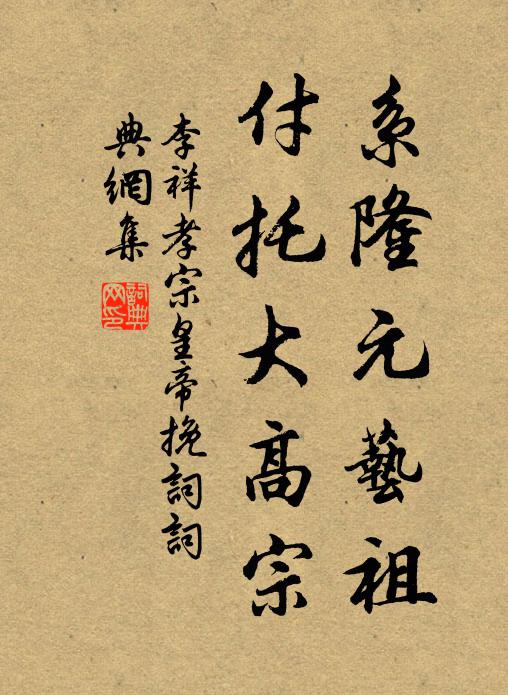 系隆元藝祖
付托大高宗
李祥孝宗皇帝挽詞詞
典網集
詞典網印